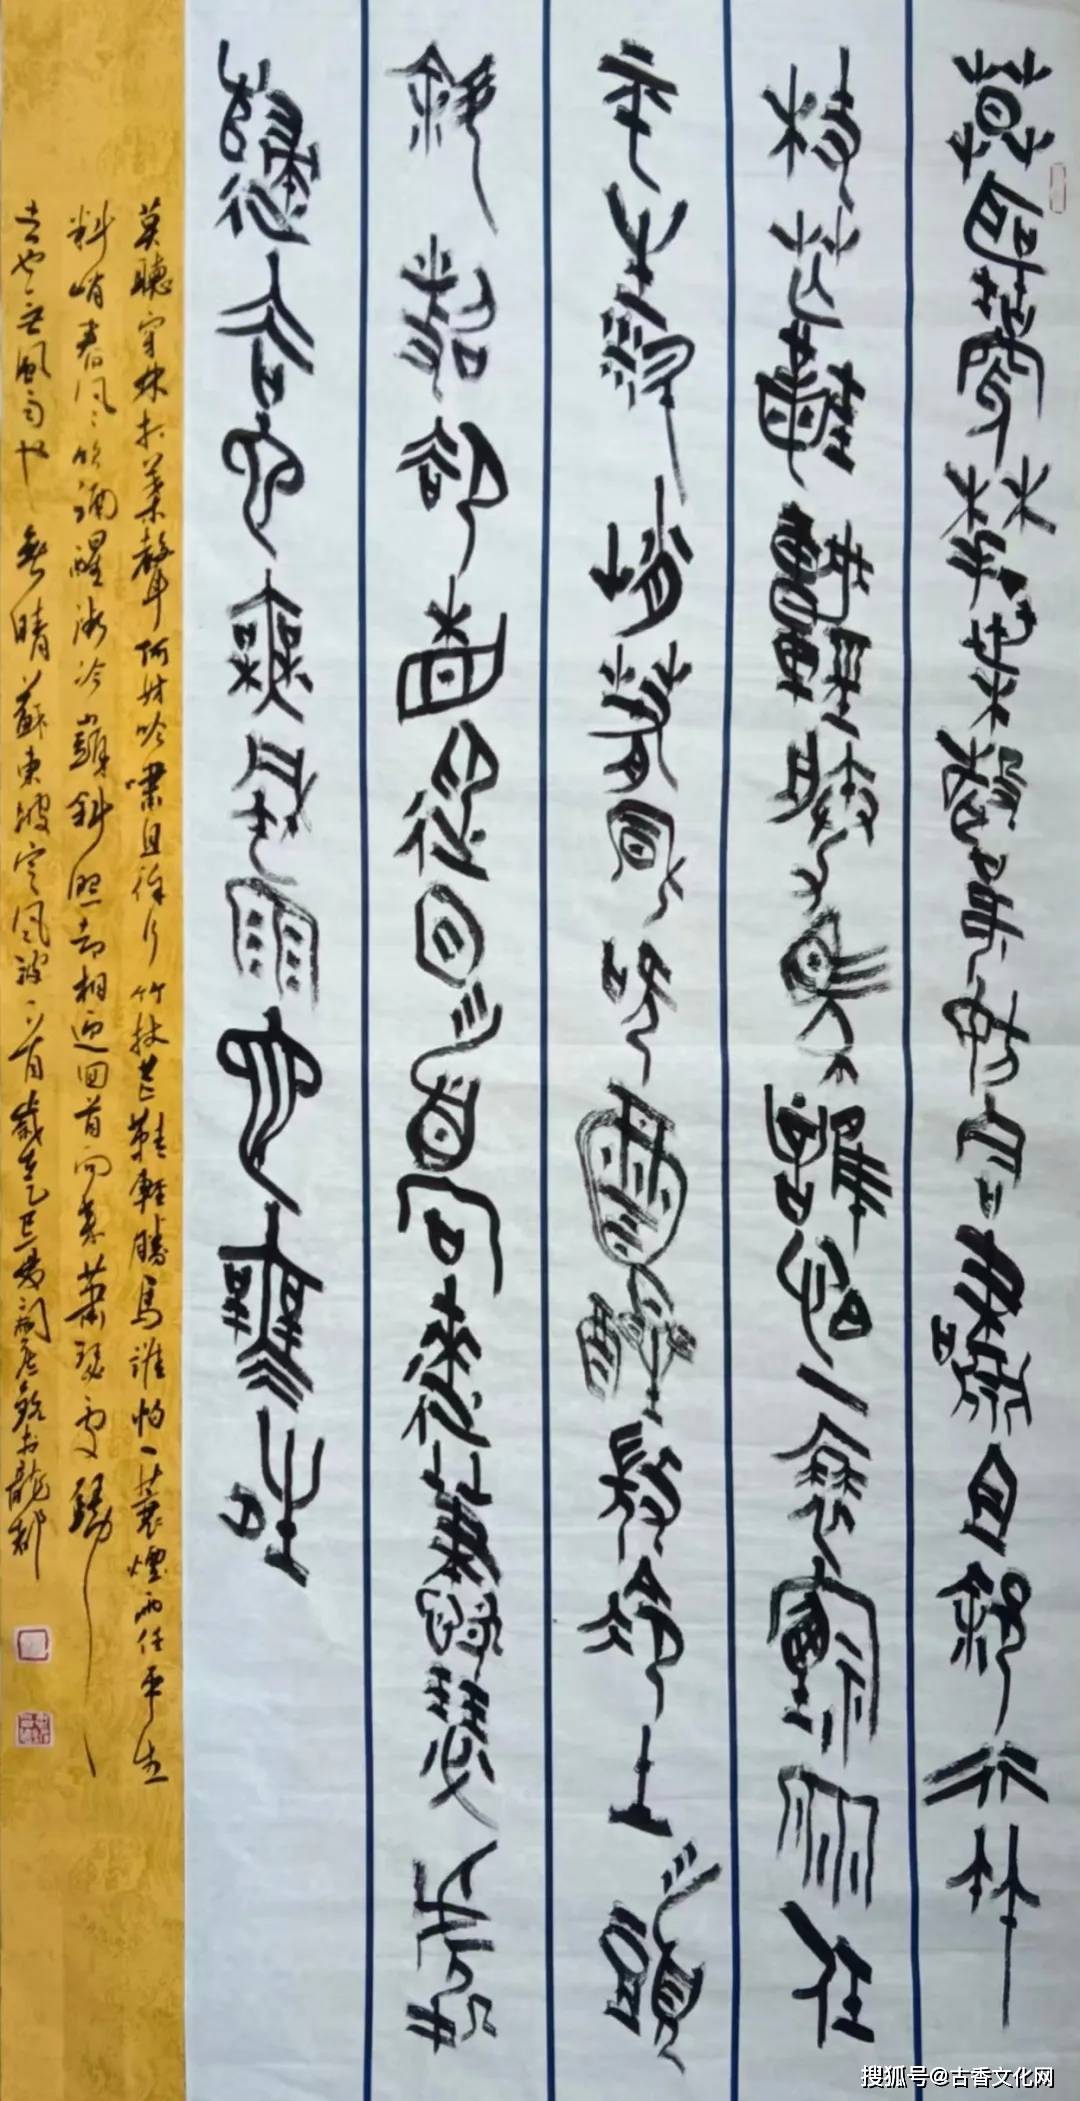 莫聽穿林打葉聲何妨吟嘯且徐行竹
杖芒鞋輕勝馬誰怕一蓑煙雨任
平生料峭春風吹酒醒微冷山頭
斜照却相迎回首向來蕭瑟處
歸去也無風雨也無晴
莫聽穿林打葉聲何妨吟嘯且徐行竹杖芒鞋輕勝馬誰怕一蓑煙雨任平生
料峭春風吹酒醒微冷山頭斜照却相迎回首向來蕭瑟處歸
去也無風雨也無晴蘇東坡定風波一首歲乙巳
搜狐号@古香文化网